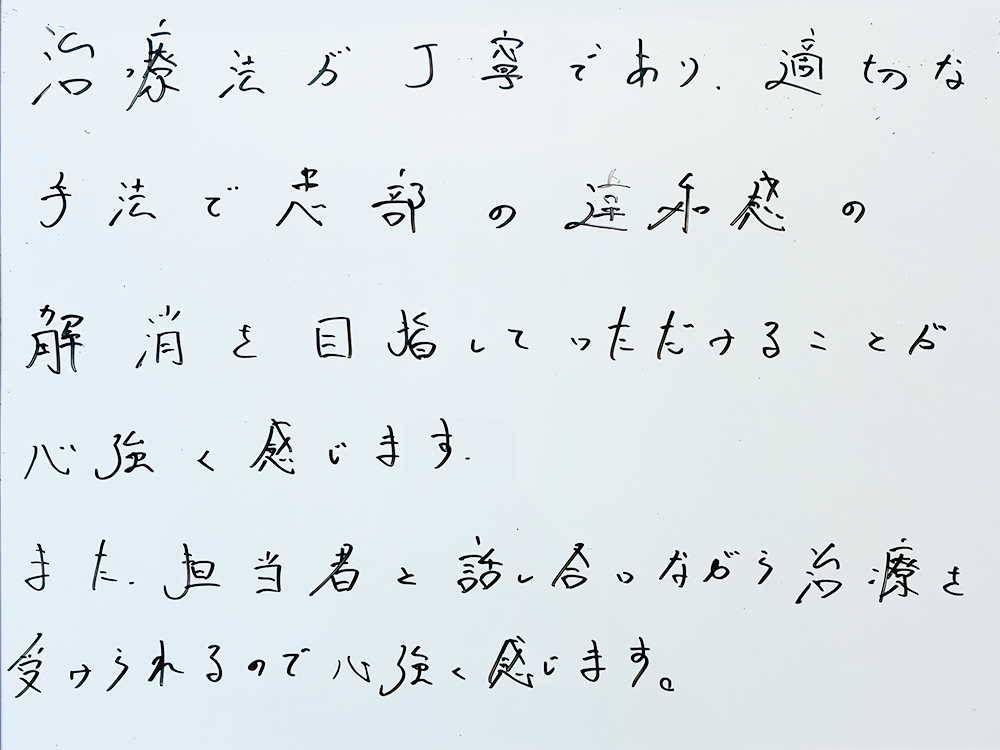 治療法が丁寧であり、適切な
手法で患部の違和感の
解消を目指していただけることが
心強く感じます。
また、担当者と話し合いながら治療を
受けられるので心強く感じます。